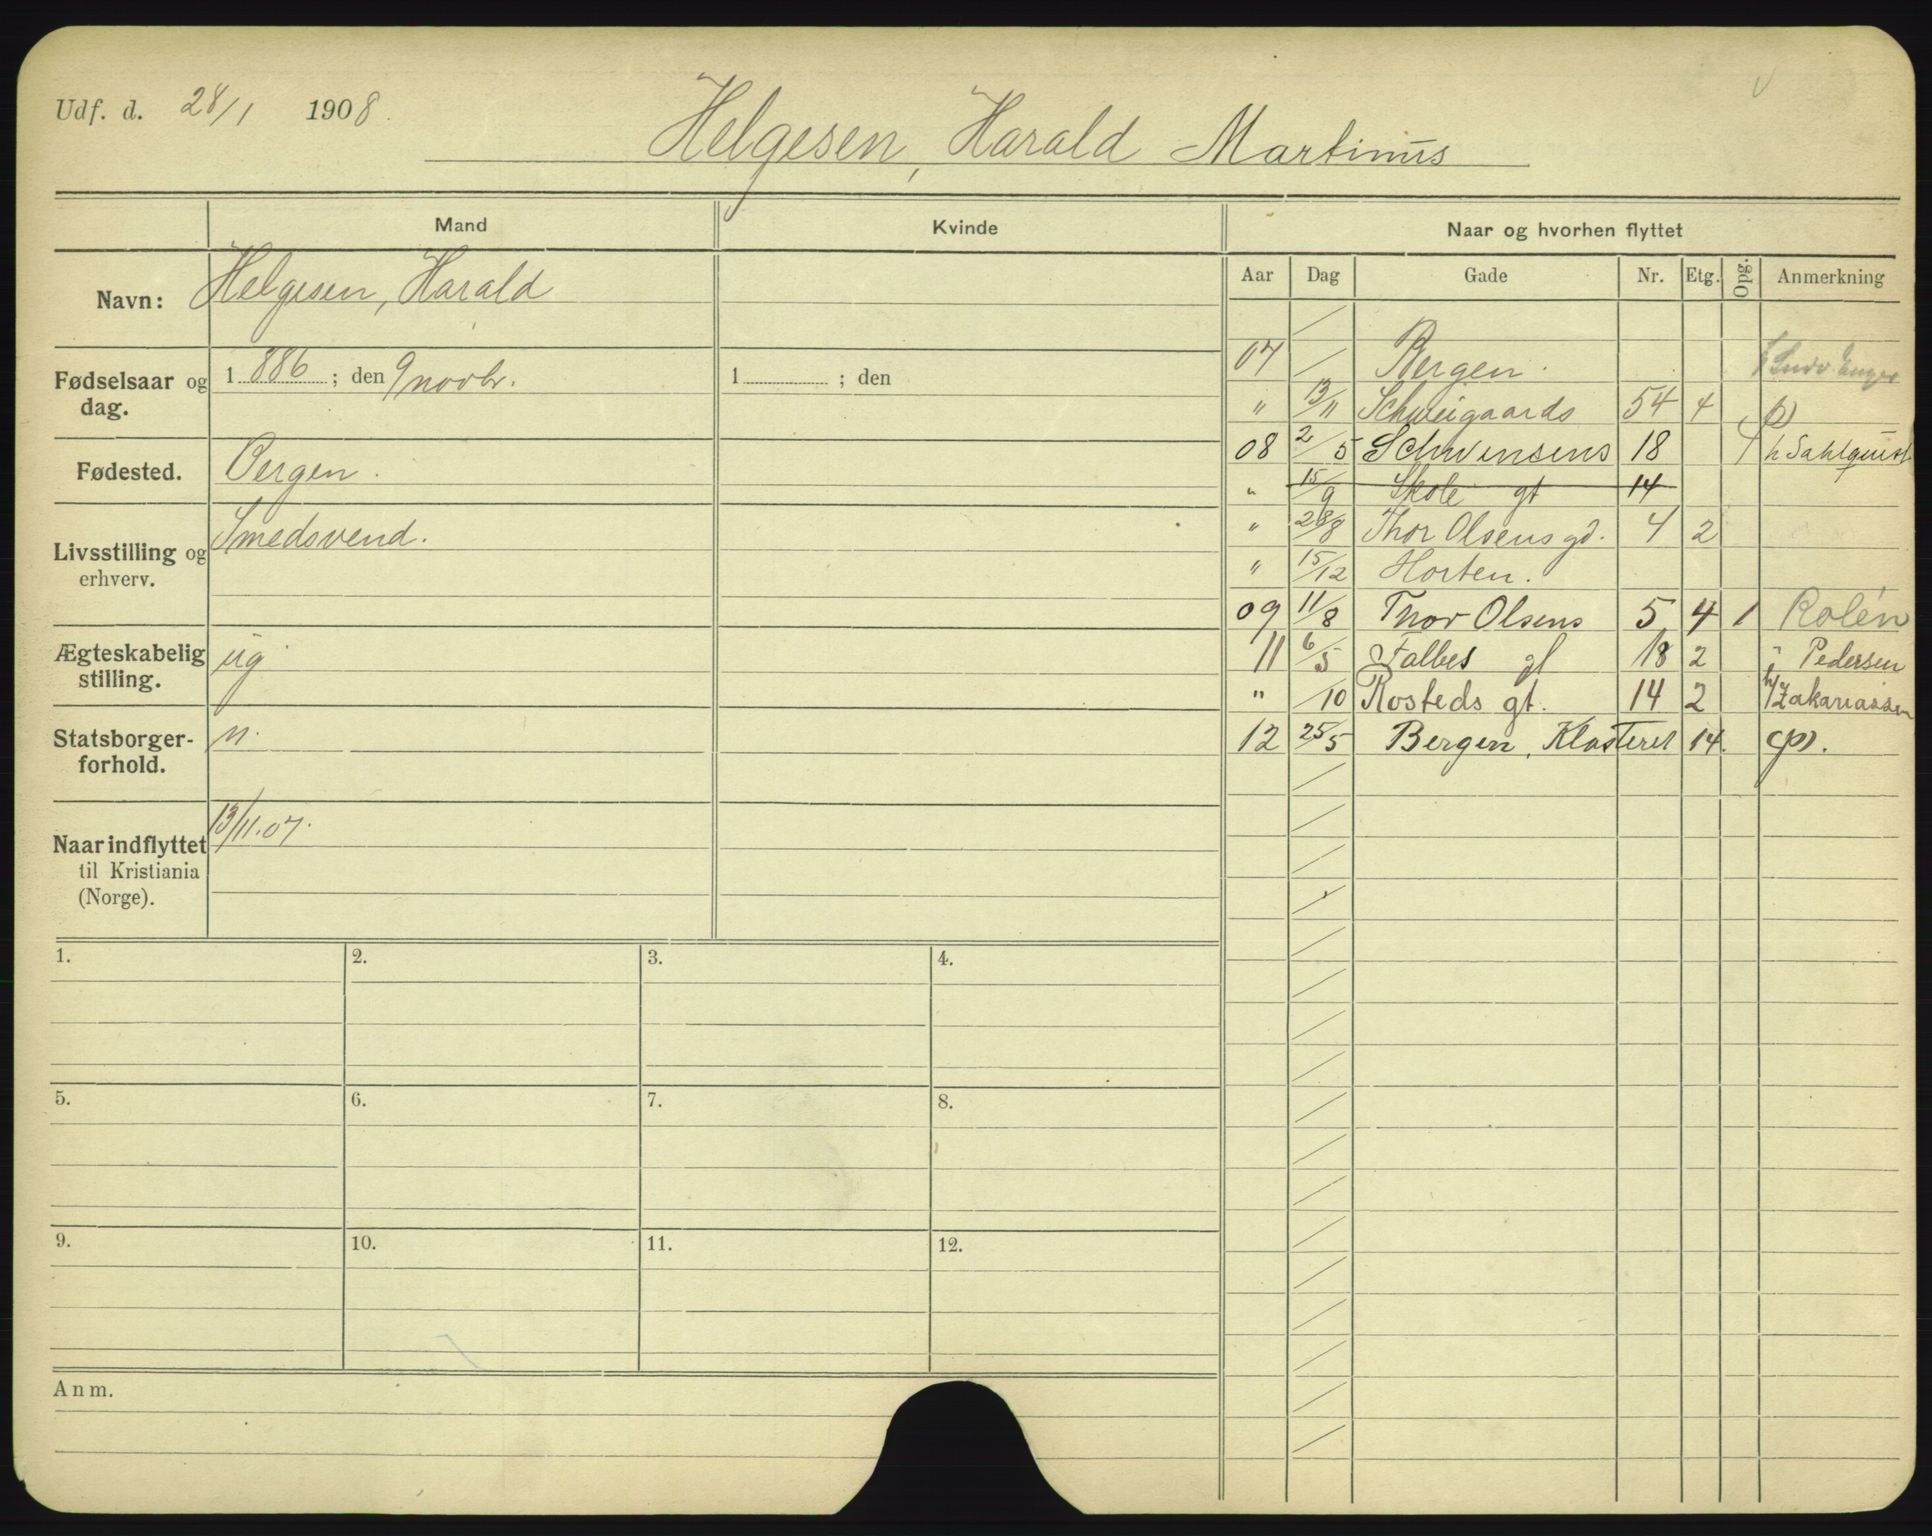 Udf. d. 28/1 1908.
Helgesen, Harald Martinus
Mand
Kvinde
Navn: Helgesen, Harald
Fødselsaar og dag. 1886; den 9 novbr. 1 ; den
Fødested. Bergen.
Livsstilling og erhverv. Smedsvend.
Ægteskabelig stilling. ug
Statsborgerforhold. n.
Naar indflyttet til Kristiania (Norge). 13/11.07.
1. 2. 3. 4.
5. 6. 7. 8.
9. 10. 11. 12.
Anm.
Naar og hvorhen flyttet
Aar Dag Gade Nr. Etg. Opg. Anmerkning
07 / Bergen.
" 13/11 Schweigaards 54 4 p)
08 2/5 Schwensens 18 h Sahlquist
" 15/9 Skole gt 14
" 28/8 Thor Olsens gd. 4 2
" 15/12 Horten.
09 11/8 Thor Olsens 5 4 1 Rolén
11 6/5 Falbes gt 18 2 Pedersen
" /10 Rosteds gt. 14 2 h/Zakariassen
12 25/5 Bergen, Klosteret 14. (p).